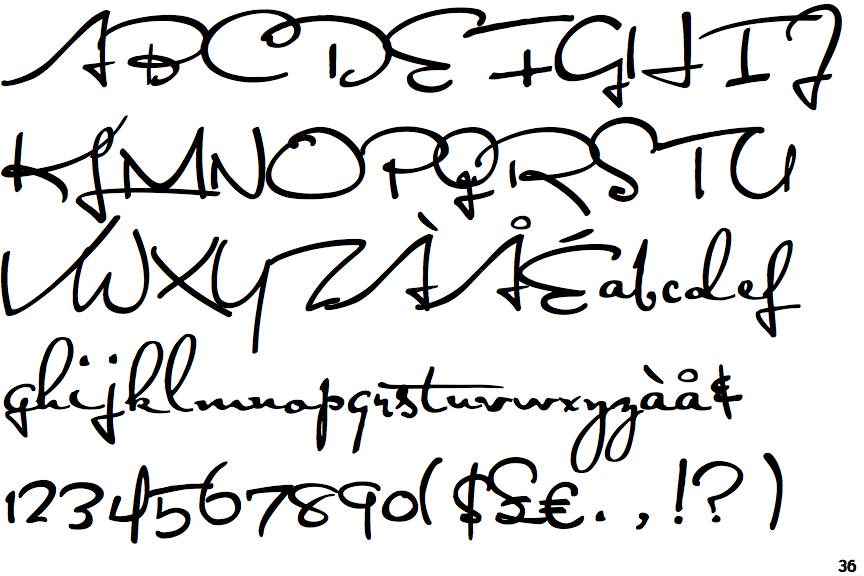 ABCDEFGHIJ
KLMNOPQRSTU
VWXYZÀÅÉabcdef
ghijklmnopqrstuvwxyzàåé
1234567890($£€.,!?)
36